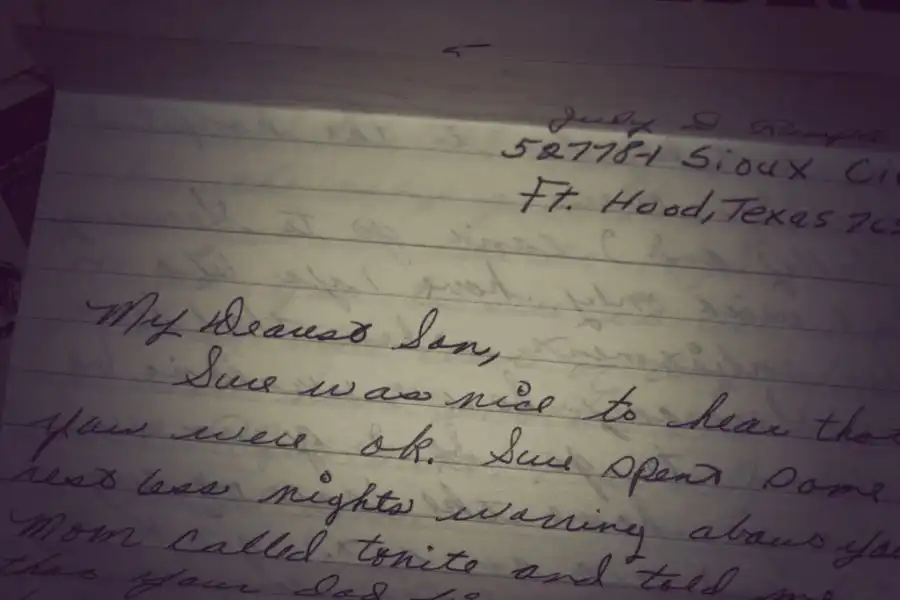 Judy D
52778-1 Sioux Ci
Ft. Hood, Texas 765
My Dearest Son,
Sure was nice to hear that
you were ok. Sure spent some
restless nights worring about you
Mom called tonite and told me
that your Dad is